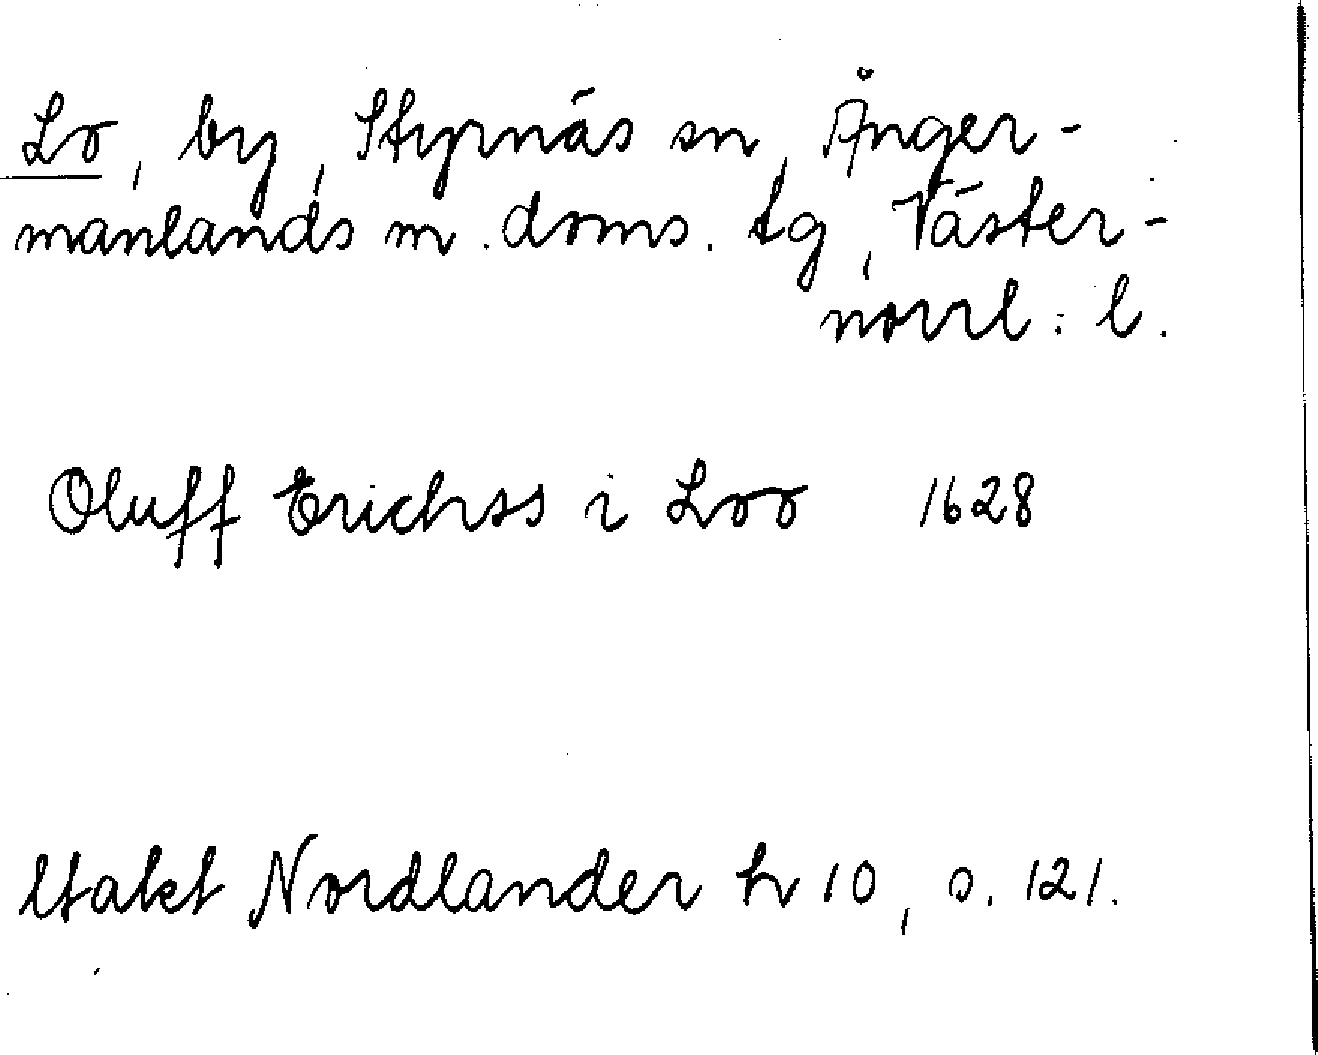 Lo, by, Styrnäs sn, Ånger-
manlands m. doms. tg, Väster-
norrl. l.
Oluff Erichss i Loo 1628
Utakt Nordlander h 10, s. 121.